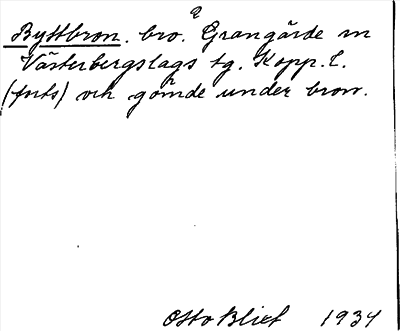 2
Byttbron. bro. Grangärde sn
Västerbergslags tg. Kopp. L.
(forts) och gömde under bron.
Otto Blixt 1934